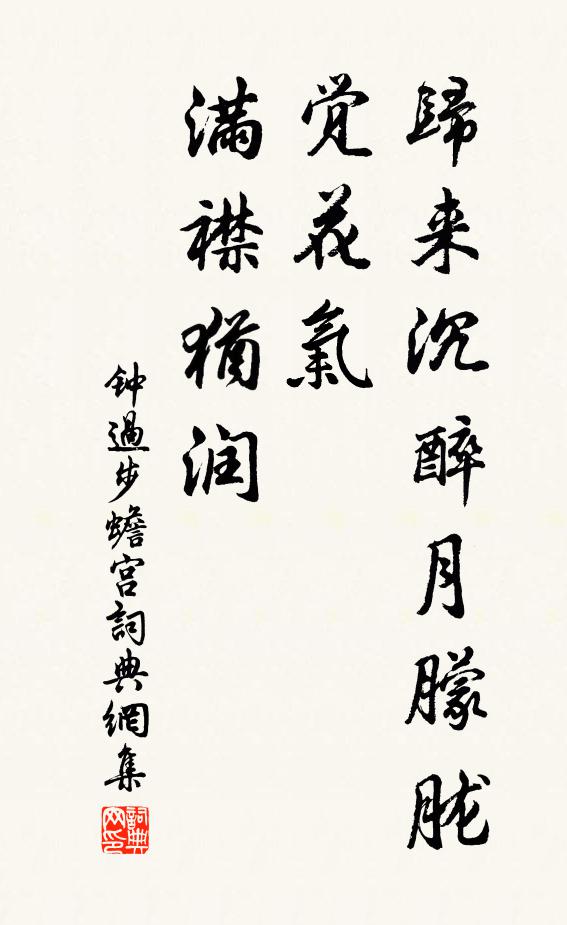 歸来沉醉月朦朧
覚花氣
滿襟猶润
钟過步蟾宫詞典網集
詞典网印